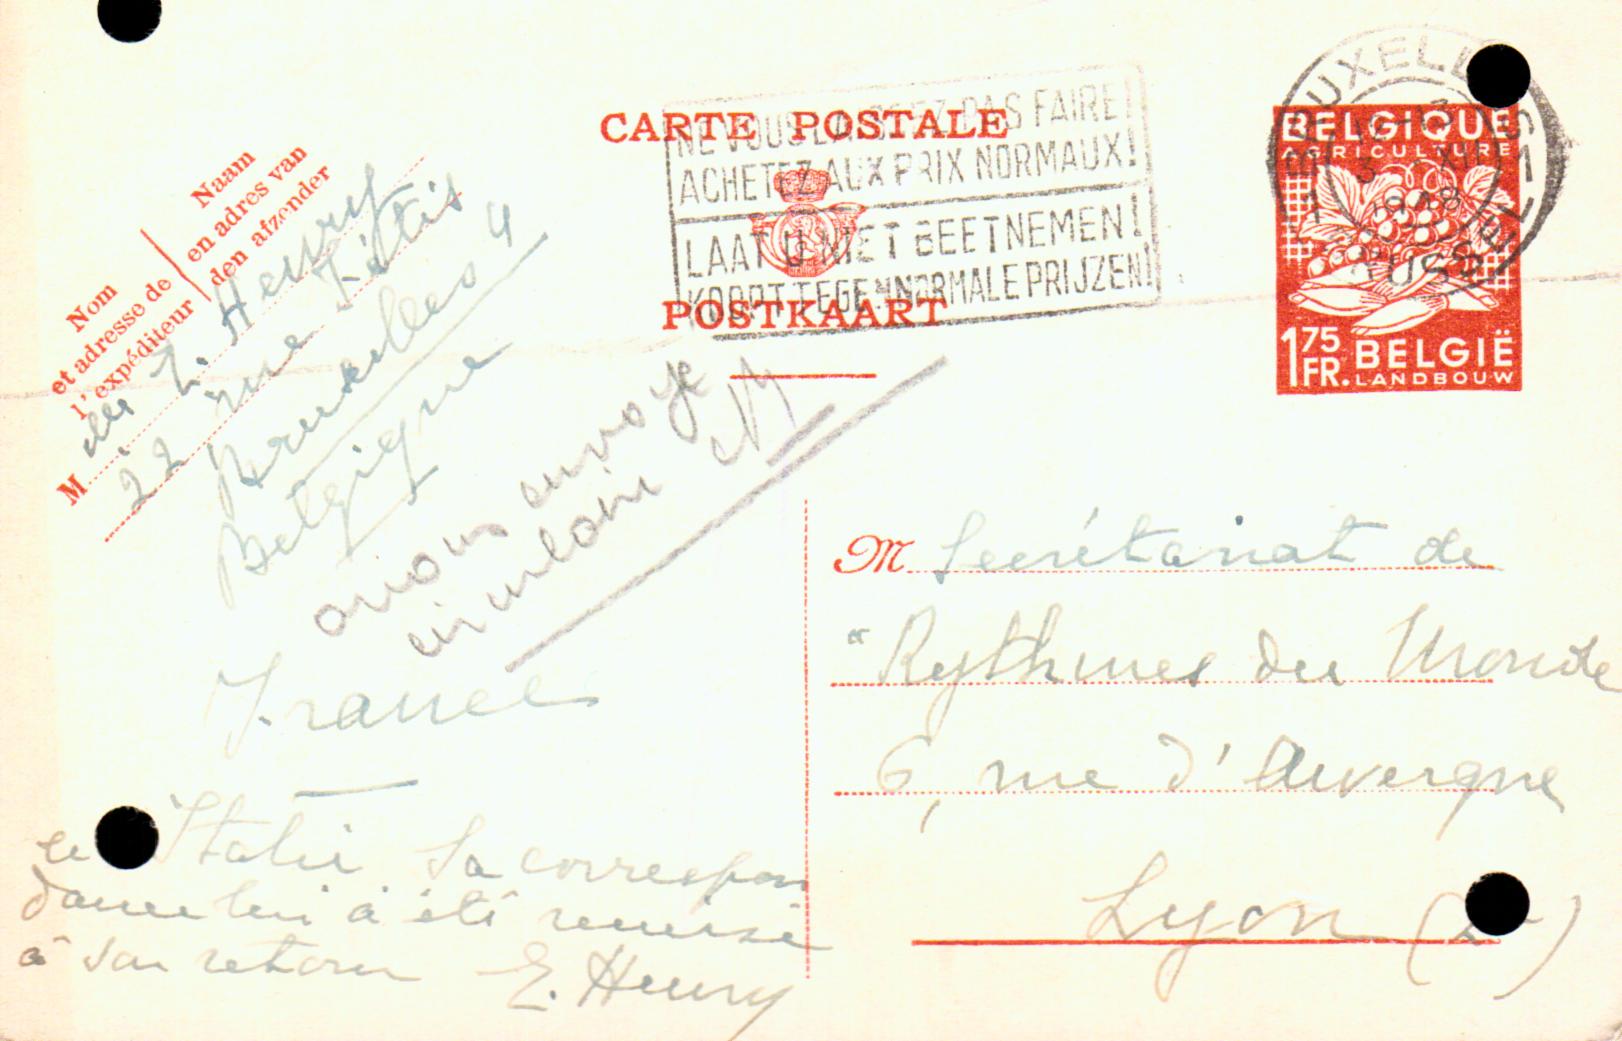 CARTE POSTALE
POSTKAART
NE VOUS LAISSEZ PAS FAIRE!
ACHETEZ AUX PRIX NORMAUX!
LAAT U NIET BEETNEMEN!
KOOPT TEGEN NORMALE PRIJZEN!
BRUXELLES
1948
BRUSSEL
BELGIQUE
AGRICULTURE
1.75 FR.
BELGIË
LANDBOUW
Naam
en adres van
den afzender
Nom
et adresse de
l'expéditeur
M elle E. Henry
22 rue Fétis
Bruxelles 4
Belgique
avions envoyé
circulaire
France
M Secrétariat de
"Rythmes du Monde
6, rue d'Auvergne
Lyon (2
en Italie sa correspon
dance lui a été remise
à son retour E. Henry